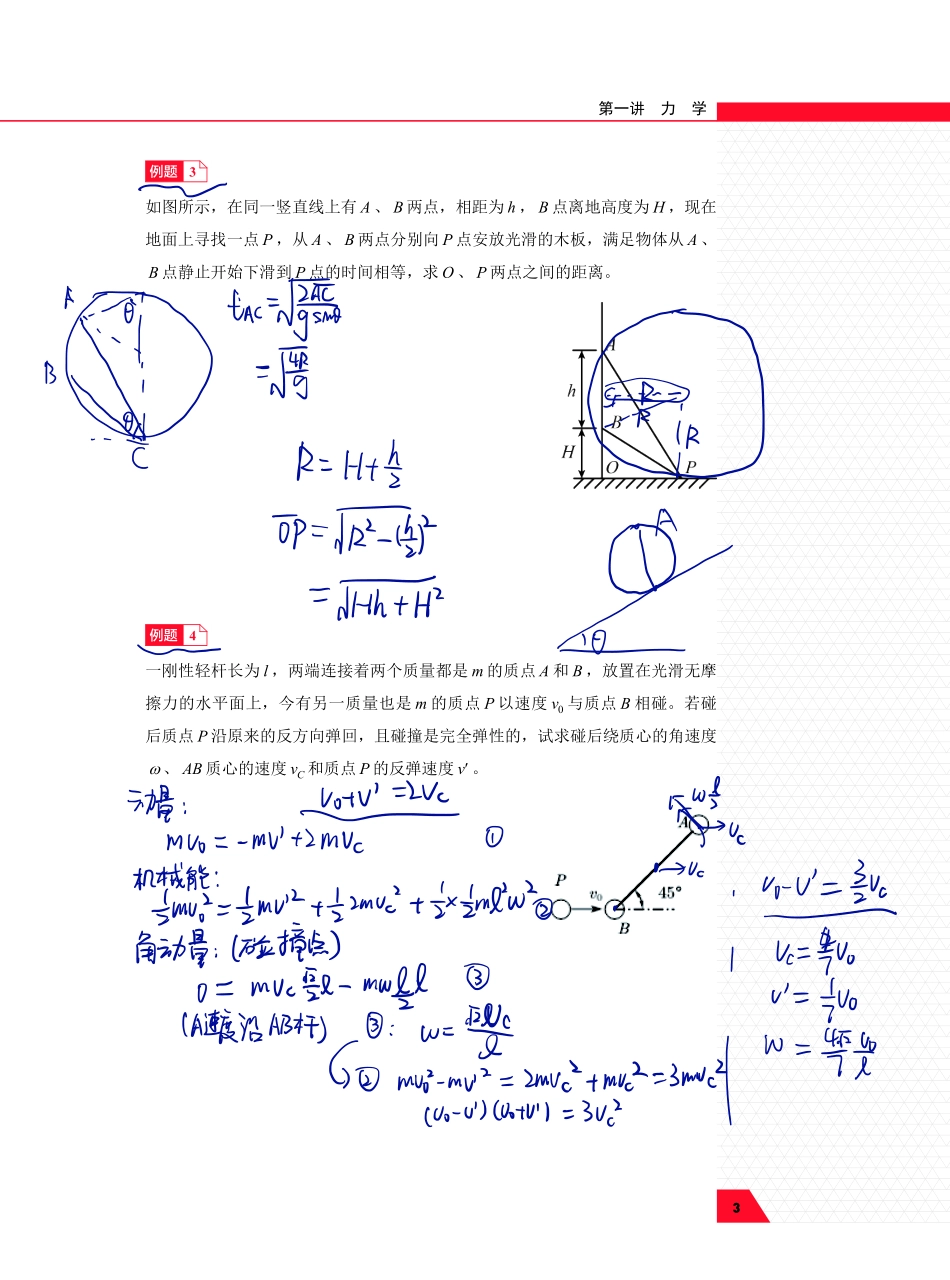 第一讲 力 学
例题 3
如图所示，在同一竖直线上有 A 、 B 两点，相距为 h ， B 点离地高度为 H ，现在
地面上寻找一点 P ，从 A 、 B 两点分别向 P 点安放光滑的木板，满足物体从 A 、
B 点静止开始下滑到 P 点的时间相等，求 O 、 P 两点之间的距离。
A
θ
B
θ
C
t_AC = √(2AC / g sinθ)
= √(4R / g)
R = H + h/2
OP = √(R² - (h/2)²)
= √(Hh + H²)
A
h
R
B
R
R
H
O
P
A
θ
例题 4
一刚性轻杆长为 l ，两端连接着两个质量都是 m 的质点 A 和 B ，放置在光滑无摩
擦力的水平面上，今有另一质量也是 m 的质点 P 以速度 v₀ 与质点 B 相碰。若碰
后质点 P 沿原来的反方向弹回，且碰撞是完全弹性的，试求碰后绕质心的角速度
ω 、 AB 质心的速度 v_C 和质点 P 的反弹速度 v′ 。
动量：
v₀+v' = 2v_c
mv₀ = -mv' + 2mv_c ①
机械能：
½mv₀² = ½mv'² + ½ 2mv_c² + ½×½ml²ω² ②
角动量：(碰撞点)
0 = mv_c √2/2 l - mω l/2 l ③
(A速度沿AB杆) ③: ω = √2 v_c / l
② mv₀² - mv'² = 2mv_c² + mv_c² = 3mv_c²
(v₀-v')(v₀+v') = 3v_c²
ω l/2
A
v_c
v_c
P
v₀
45°
B
v₀-v' = 3/2 v_c
v_c = 4/7 v₀
v' = 1/7 v₀
ω = 4√2/7 v₀/l
3